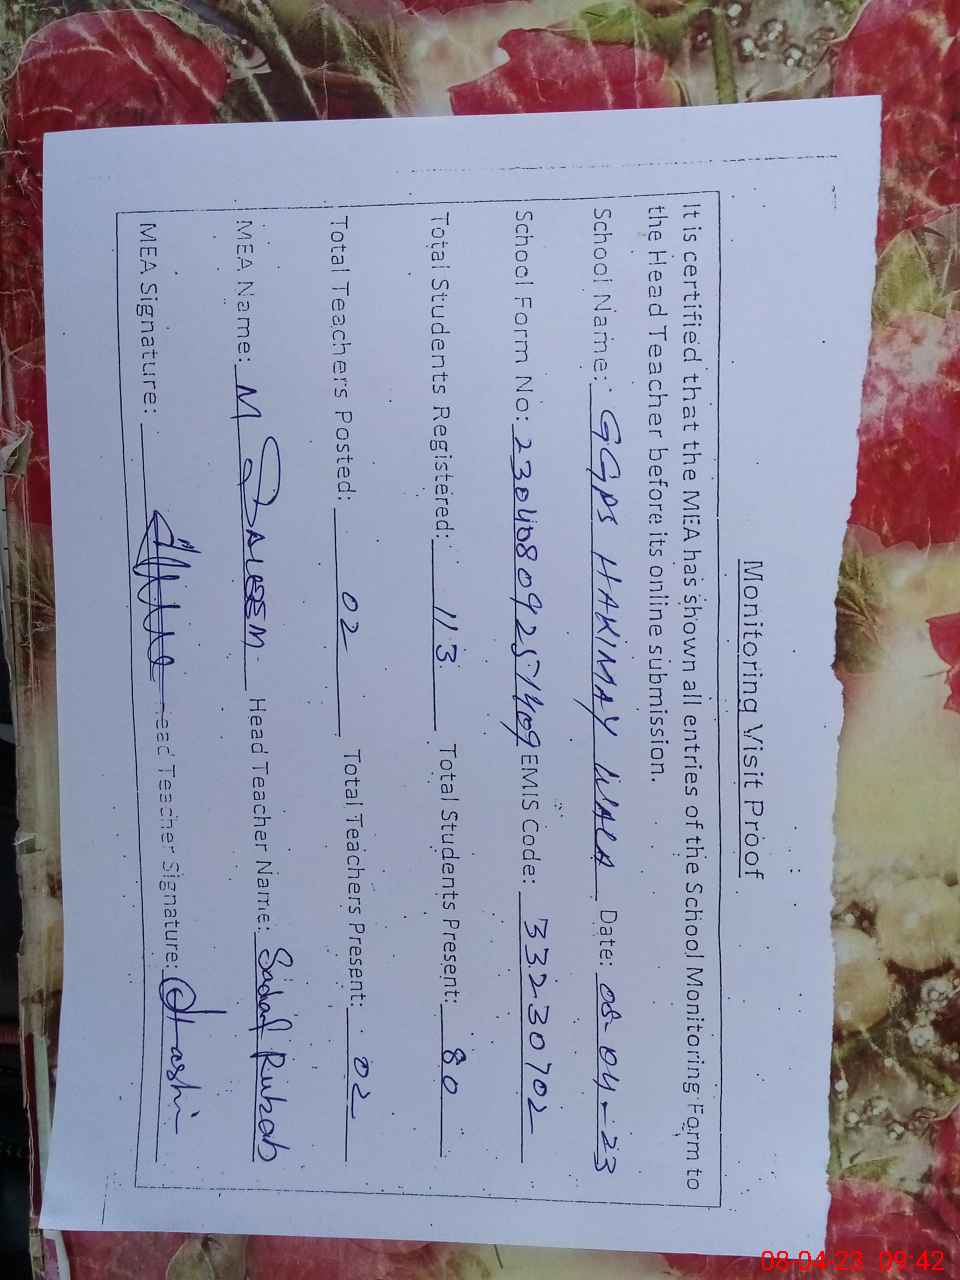 Monitoring Visit Proof
It is certified that the MEA has shown all entries of the School Monitoring Form to
the Head Teacher before its online submission.
School Name: GGPS HAKIMAY WALA Date: 08-04-23
School Form No: 23040809251409 EMIS Code: 33230702
Total Students Registered: 113 Total Students Present: 80
Total Teachers Posted: 02 Total Teachers Present: 02
MEA Name: M SALEEM Head Teacher Name: Sadaf Rubab
MEA Signature: Head Teacher Signature:
08-04-23 09:42